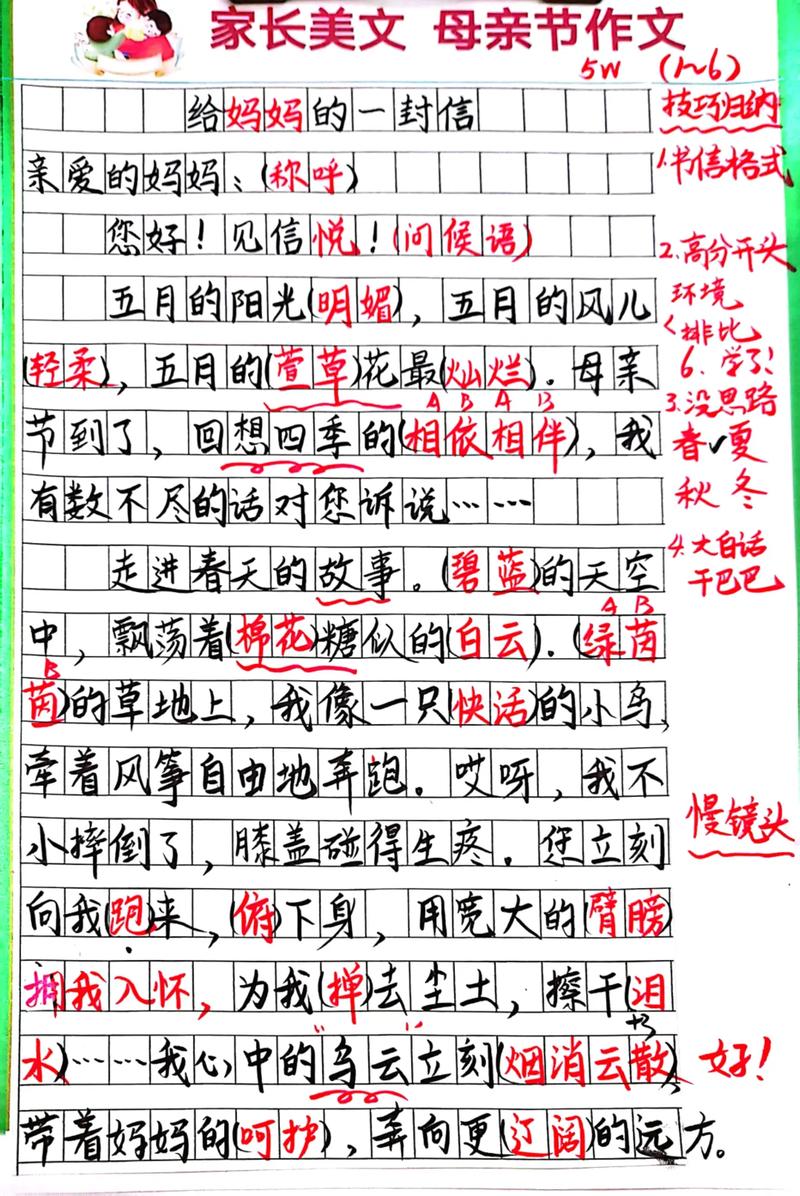 家长美文 母亲节作文
5W (1~6)
给妈妈的一封信
技巧归纳
亲爱的妈妈：(称呼)
1.书信格式
您好！见信悦！(问候语)
2.高分开头
五月的阳光(明媚)，五月的风儿
环境
排比
(轻柔)，五月的(萱草)花最(灿烂)．母亲
6、学了！
A B A B
3.没思路
节到了，回想四季的(相依相伴)，我
春✓夏
秋 冬
有数不尽的话对您诉说……
4.大白话
走进春天的故事。(碧蓝)的天空
干巴巴
A B
中，飘荡着(棉花)糖似的(白云)．(绿茵
B
茵)的草地上，我像一只(快活)的小鸟，
牵着风筝自由地奔跑。哎呀，我不
慢镜头
小摔倒了，膝盖碰得生疼．您立刻
向我(跑)来，(俯)下身，用宽大的(臂膀)
拥我入怀，为我(掸)去尘土，擦干(泪
水)……我心中的"乌云"立刻(烟消云散)，
好！
带着妈妈的(呵护)，奔向更(辽阔)的远方。